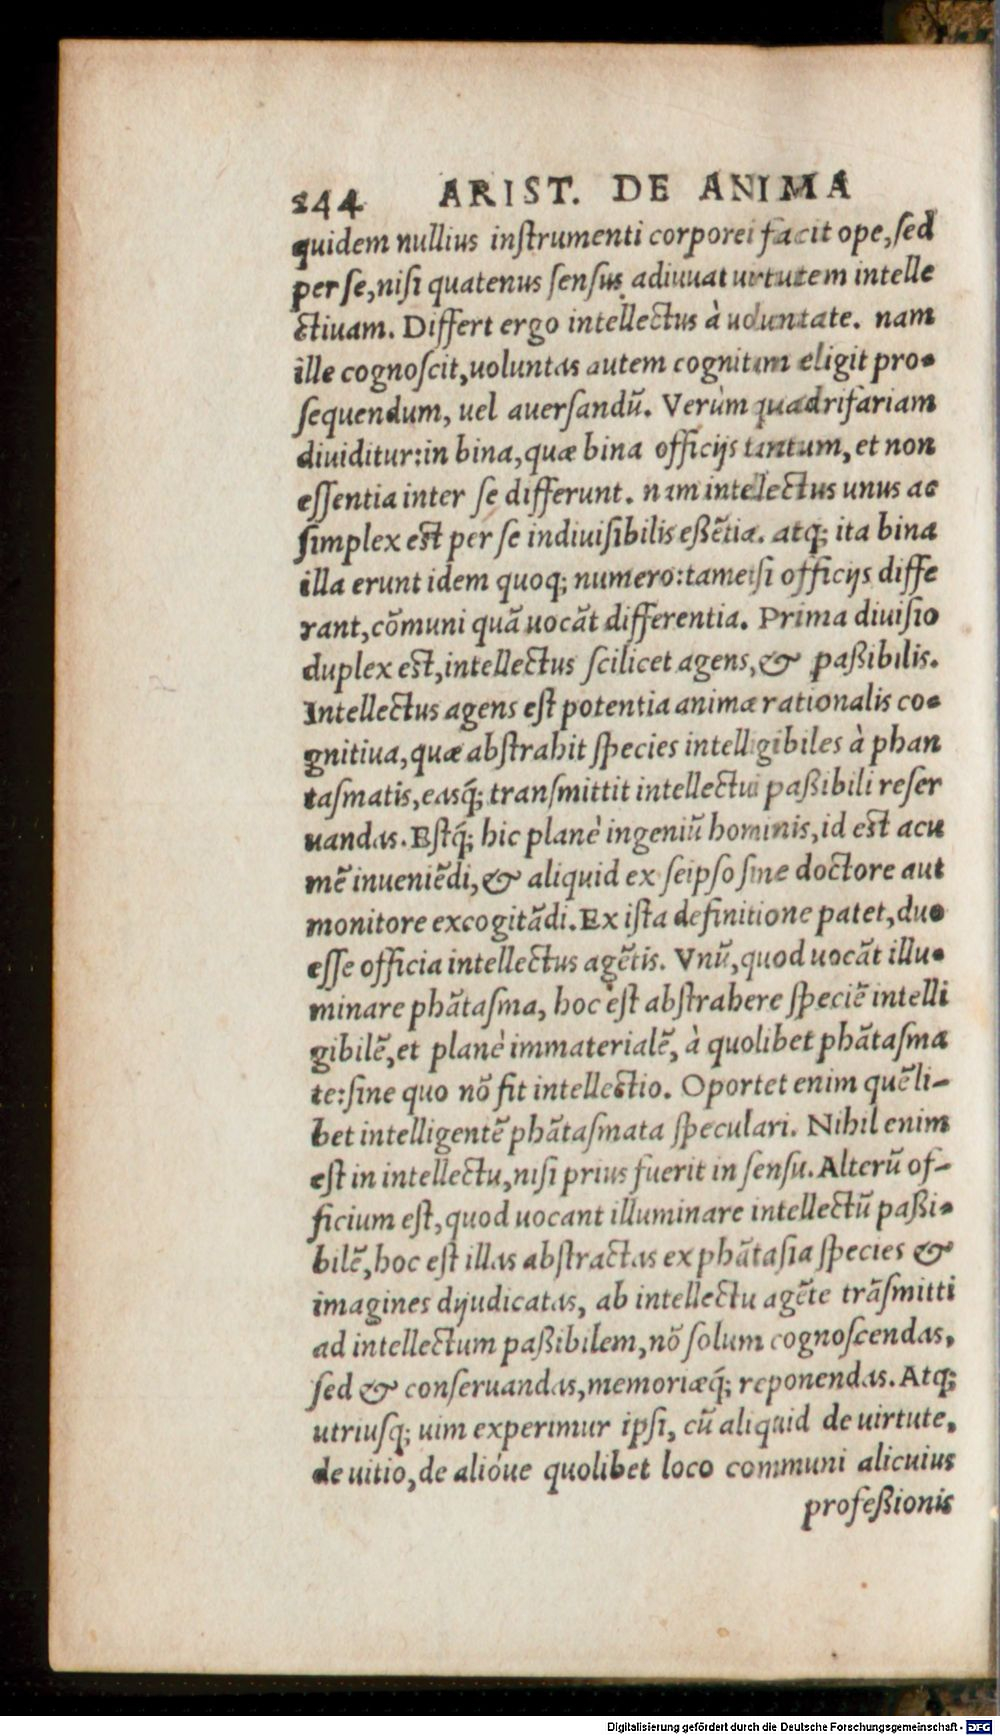 244 ARIST. DE ANIMA
quidem nullius inſtrumenti corporei facit ope, ſed
per ſe, niſi quatenus ſenſus adiuuat uirtutem intelle
ctiuam. Differt ergo intellectus à uoluntate. nam
ille cognoſcit, uoluntas autem cognitam eligit pro-
ſequendum, uel auerſandū. Verùm quadrifariam
diuiditur: in bina, quæ bina officijs tantum, et non
eſſentia inter ſe differunt. nam intellectus unus ac
ſimplex est per ſe indiuiſibilis eßētia. atq; ita bina
illa erunt idem quoq; numero: tametſi officijs diffe
rant, cōmuni quā uocāt differentia. Prima diuiſio
duplex est, intellectus ſcilicet agens, & paßibilis.
Intellectus agens eſt potentia animæ rationalis co-
gnitiua, quæ abſtrahit ſpecies intelligibiles à phan
taſmatis, easq́; tranſmittit intellectui paßibili reſer
uandas. Eſtq́; hic planè ingeniū hominis, id est acu
mē inueniēdi, & aliquid ex ſeipſo ſine doctore aut
monitore excogitādi. Ex iſta definitione patet, duo
eſſe officia intellectus agētis. Vnū, quod uocāt illu-
minare phātaſma, hoc est abſtrahere ſpeciē intelli
gibilē, et planè immaterialē, à quolibet phātaſma
te: ſine quo nō fit intellectio. Oportet enim quēli-
bet intelligentē phātaſmata ſpeculari. Nihil enim
eſt in intellectu, niſi prius fuerit in ſenſu. Alterū of-
ficium eſt, quod uocant illuminare intellectū paßi-
bilē, hoc eſt illas abſtractas ex phātaſia ſpecies &
imagines dijudicatas, ab intellectu agēte trāſmitti
ad intellectum paßibilem, nō ſolum cognoſcendas,
ſed & conſeruandas, memoriæq́; reponendas. Atq;
utriuſq; uim experimur ipſi, cū aliquid de uirtute,
de uitio, de alióue quolibet loco communi alicuius
profeßionis
Digitalisierung gefördert durch die Deutsche Forschungsgemeinschaft - DFG